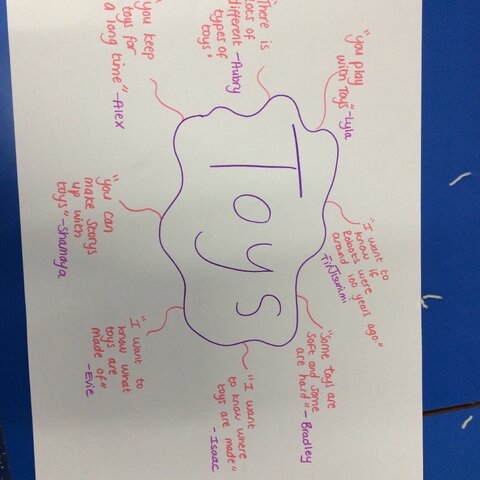 "you play
with Toys" -Lyla
"I want to
know if
Robots were
around 100 years ago."
"Some toys are
soft and some
are hard" - Bradley
"There is
lots of
different -Aubry
types of
toys"
Toys
"I want
to know where
toys are made"
- Isaac
"you keep
toys for
a long time" -Alex
"you can
make storys
up with
toys" -Shamaya
"I want to
know what
toys are
made of"
- Evie